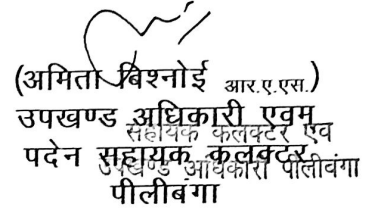 (अमिता बिश्नोई आर.ए.एस.)
उपखण्ड अधिकारी एवम
सहायक कलक्टर एवं
पदेन सहायक कलक्टर
उपखण्ड अधिकारी पीलीबंगा
पीलीबंगा